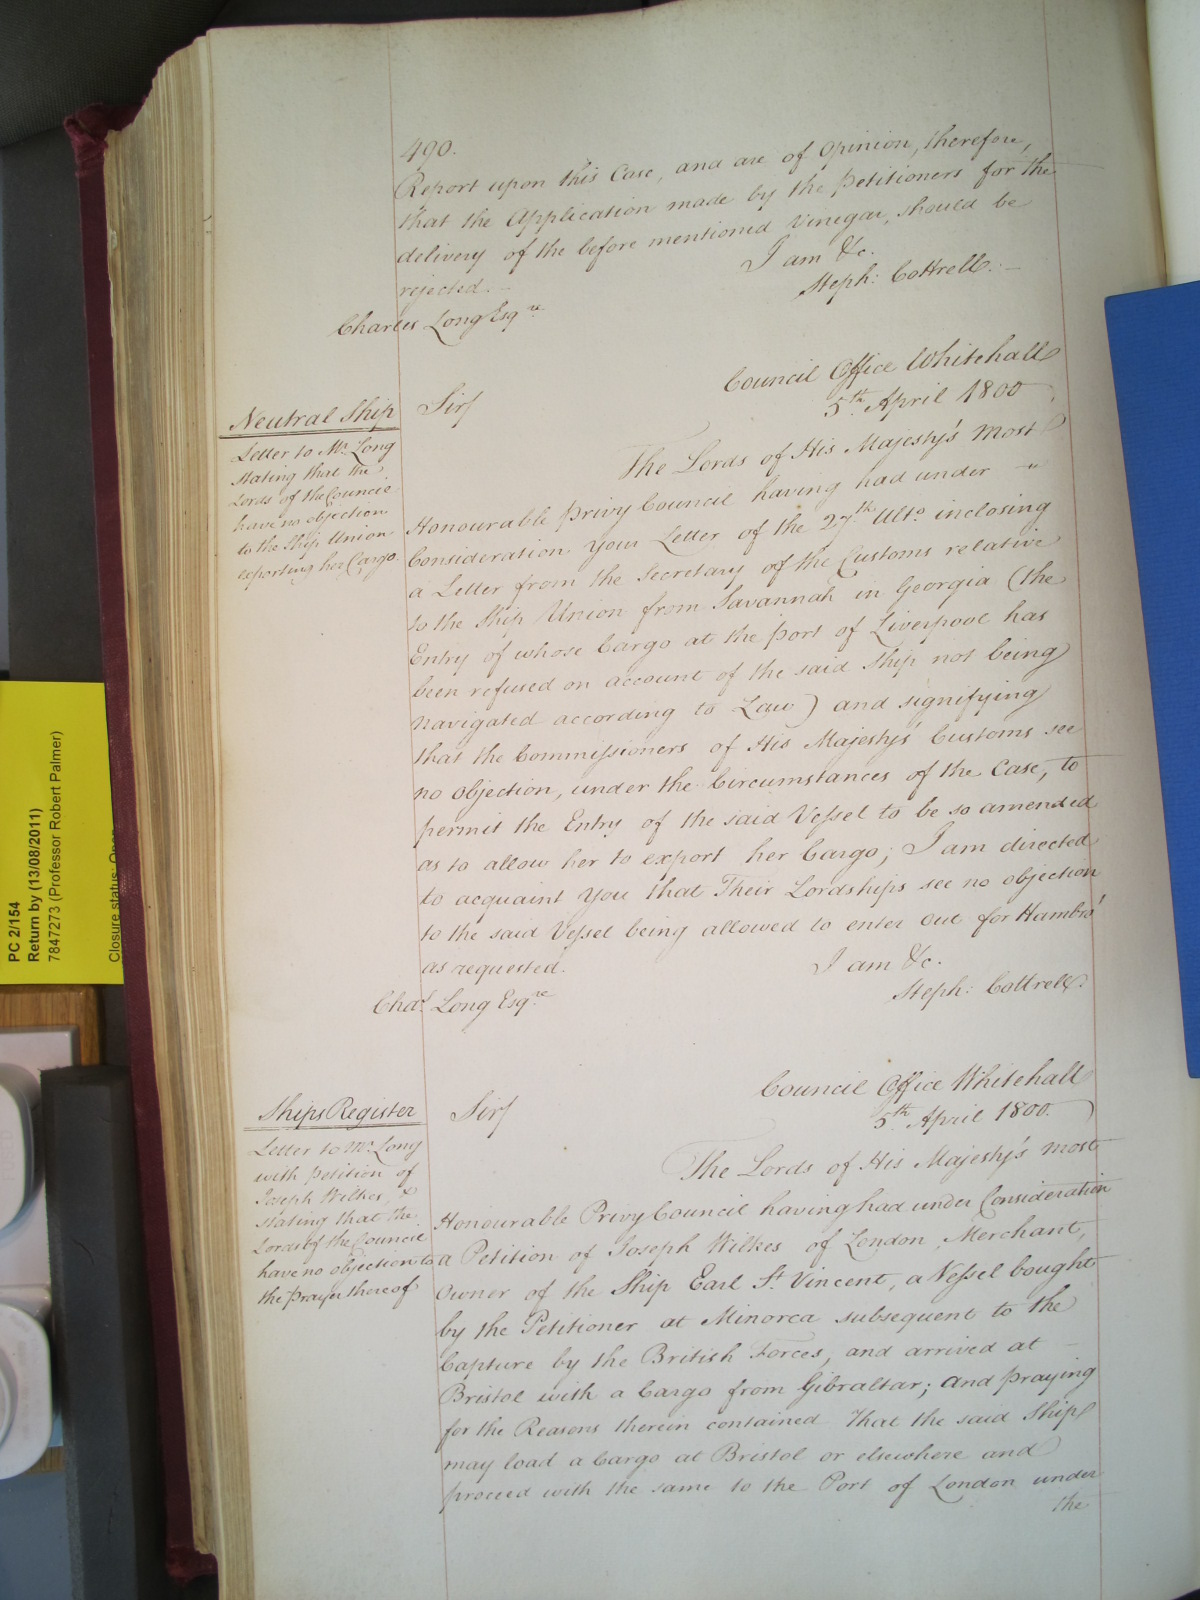 490.
Report upon this Case, and are of Opinion, therefore,
that the Application made by the Petitioners for the
delivery of the before mentioned Vinegar, should be
rejected. —
I am &c.
Steph: Cottrell. —
Charles Long Esqre
Council Office Whitehall
5th April 1800
Neutral Ship
Letter to Mr Long
stating that the
Lords of the Council
have no objection
to the Ship Union
exporting her Cargo.
Sir/
The Lords of His Majesty's Most
Honourable Privy Council having had under
Consideration your Letter of the 27th Ulto inclosing
a Letter from the Secretary of the Customs relative
to the Ship Union from Savannah in Georgia (the
Entry of whose Cargo at the port of Liverpool has
been refused on account of the said Ship not being
navigated according to Law) and signifying
that the Commissioners of His Majesty's Customs see
no objection, under the Circumstances of the Case, to
permit the Entry of the said Vessel to be so amended
as to allow her to export her Cargo; I am directed
to acquaint you that Their Lordships see no objection
to the said Vessel being allowed to enter out for Hambro'
as requested.
I am &c.
Steph: Cottrell.
Chas Long Esqre
Council Office Whitehall
5th April 1800.
Ships Register
Letter to Mr Long
with Petition of
Joseph Wilkes, &
stating that the
Lords of the Council
have no objection to
the Prayer thereof
Sir/
The Lords of His Majesty's most
Honourable Privy Council having had under Consideration
a Petition of Joseph Wilkes of London, Merchant,
Owner of the Ship Earl St Vincent, a Vessel bought
by the Petitioner at Minorca subsequent to the
Capture by the British Forces, and arrived at —
Bristol with a Cargo from Gibraltar; and praying
for the Reasons therein contained That the said Ship
may load a Cargo at Bristol or elsewhere and
proceed with the same to the Port of London under
the
PC 2/154
Return by (13/08/2011)
7847273 (Professor Robert Palmer)
Closure status: Open